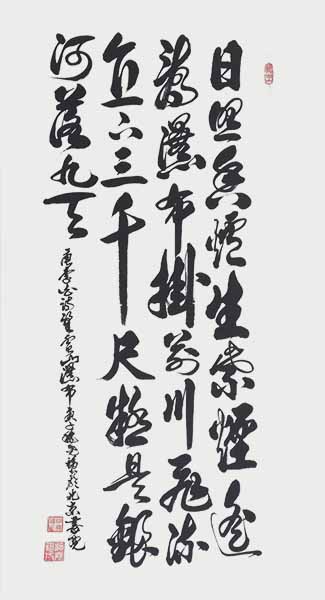 日照香爐生紫煙遙
看瀑布掛前川飛流
直下三千尺疑是銀
河落九天
李白詩望廬山瀑布 北京